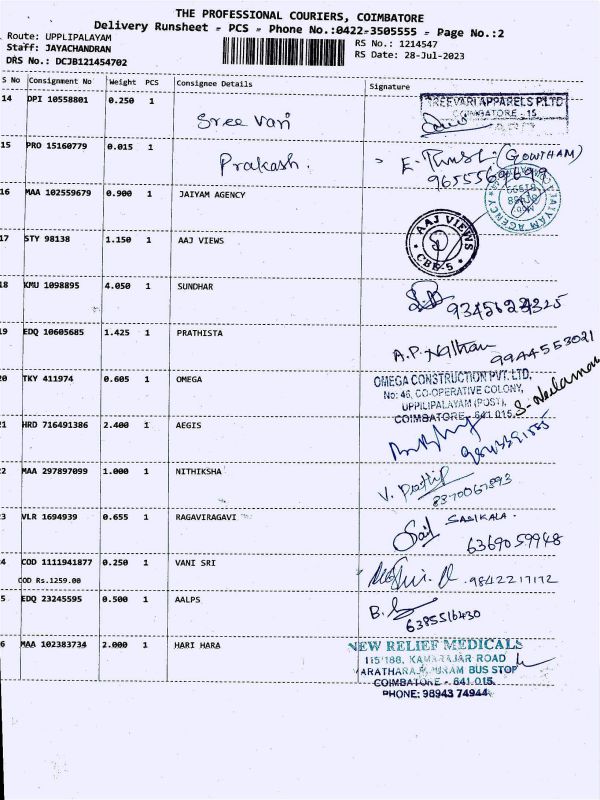 THE PROFESSIONAL COURIERS, COIMBATORE
Delivery Runsheet - PCS - Phone No.:0422-3505555 - Page No.:2
Route: UPPLIPALAYAM
RS No.: 1214547
Staff: JAYACHANDRAN
RS Date: 28-Jul-2023
DRS No.: DCJB121454702
S No Consignment No Weight PCS Consignee Details Signature
14 DPI 10558801 0.250 1 Sree Vari
SREEVARI APPARELS P LTD
COIMBATORE - 15
15 PRO 15160779 0.015 1 Prakash. (GOWTHAM)
16 MAA 102559679 0.900 1 JAIYAM AGENCY
JAIYAM AGENCY
17 STY 98138 1.150 1 AAJ VIEWS
AAJ VIEWS
CBE-5
18 KMU 1098895 4.050 1 SUNDHAR
19 EDQ 10605685 1.425 1 PRATHISTA
A.P. Nathan 9944553021
20 TKY 411974 0.605 1 OMEGA
OMEGA CONSTRUCTION PVT. LTD,
No: 46, CO-OPERATIVE COLONY,
UPPILIPALAYAM (POST),
COIMBATORE - 641 015.
21 HRD 716491386 2.400 1 AEGIS
22 MAA 297897099 1.000 1 NITHIKSHA
V. Prathip
23 VLR 1694939 0.655 1 RAGAVIRAGAVI
SASIKALA.
6369059948
24 COD 1111941877 0.250 1 VANI SRI
9842217172
COD Rs.1259.00
25 EDQ 23245595 0.500 1 AALPS
6385516430
26 MAA 102383734 2.000 1 HARI HARA
NEW RELIEF MEDICALS
115/188, KAMARAJAR ROAD
VARATHARAJAPURAM BUS STOP
COIMBATORE - 641 015.
PHONE: 98943 74944